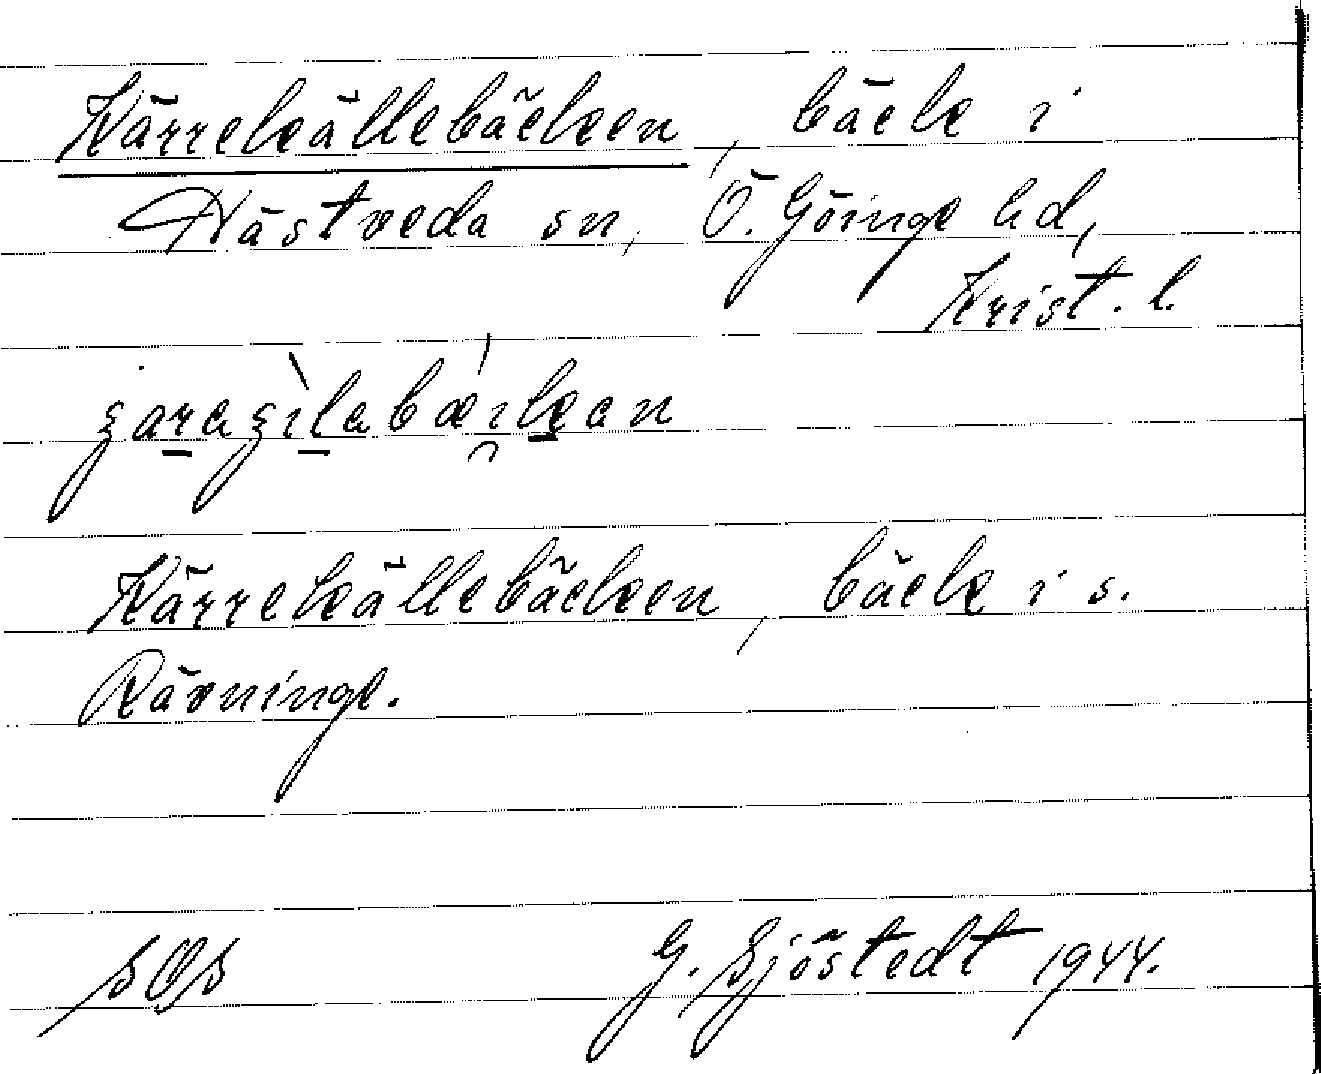 Kärrekällebäcken, bäck i
Hästveda sn, Ö. Göinge hd,
Krist. l.
Kärrekällebäcken, bäck i s.
Rävninge.
SOS G. Sjöstedt 1944.